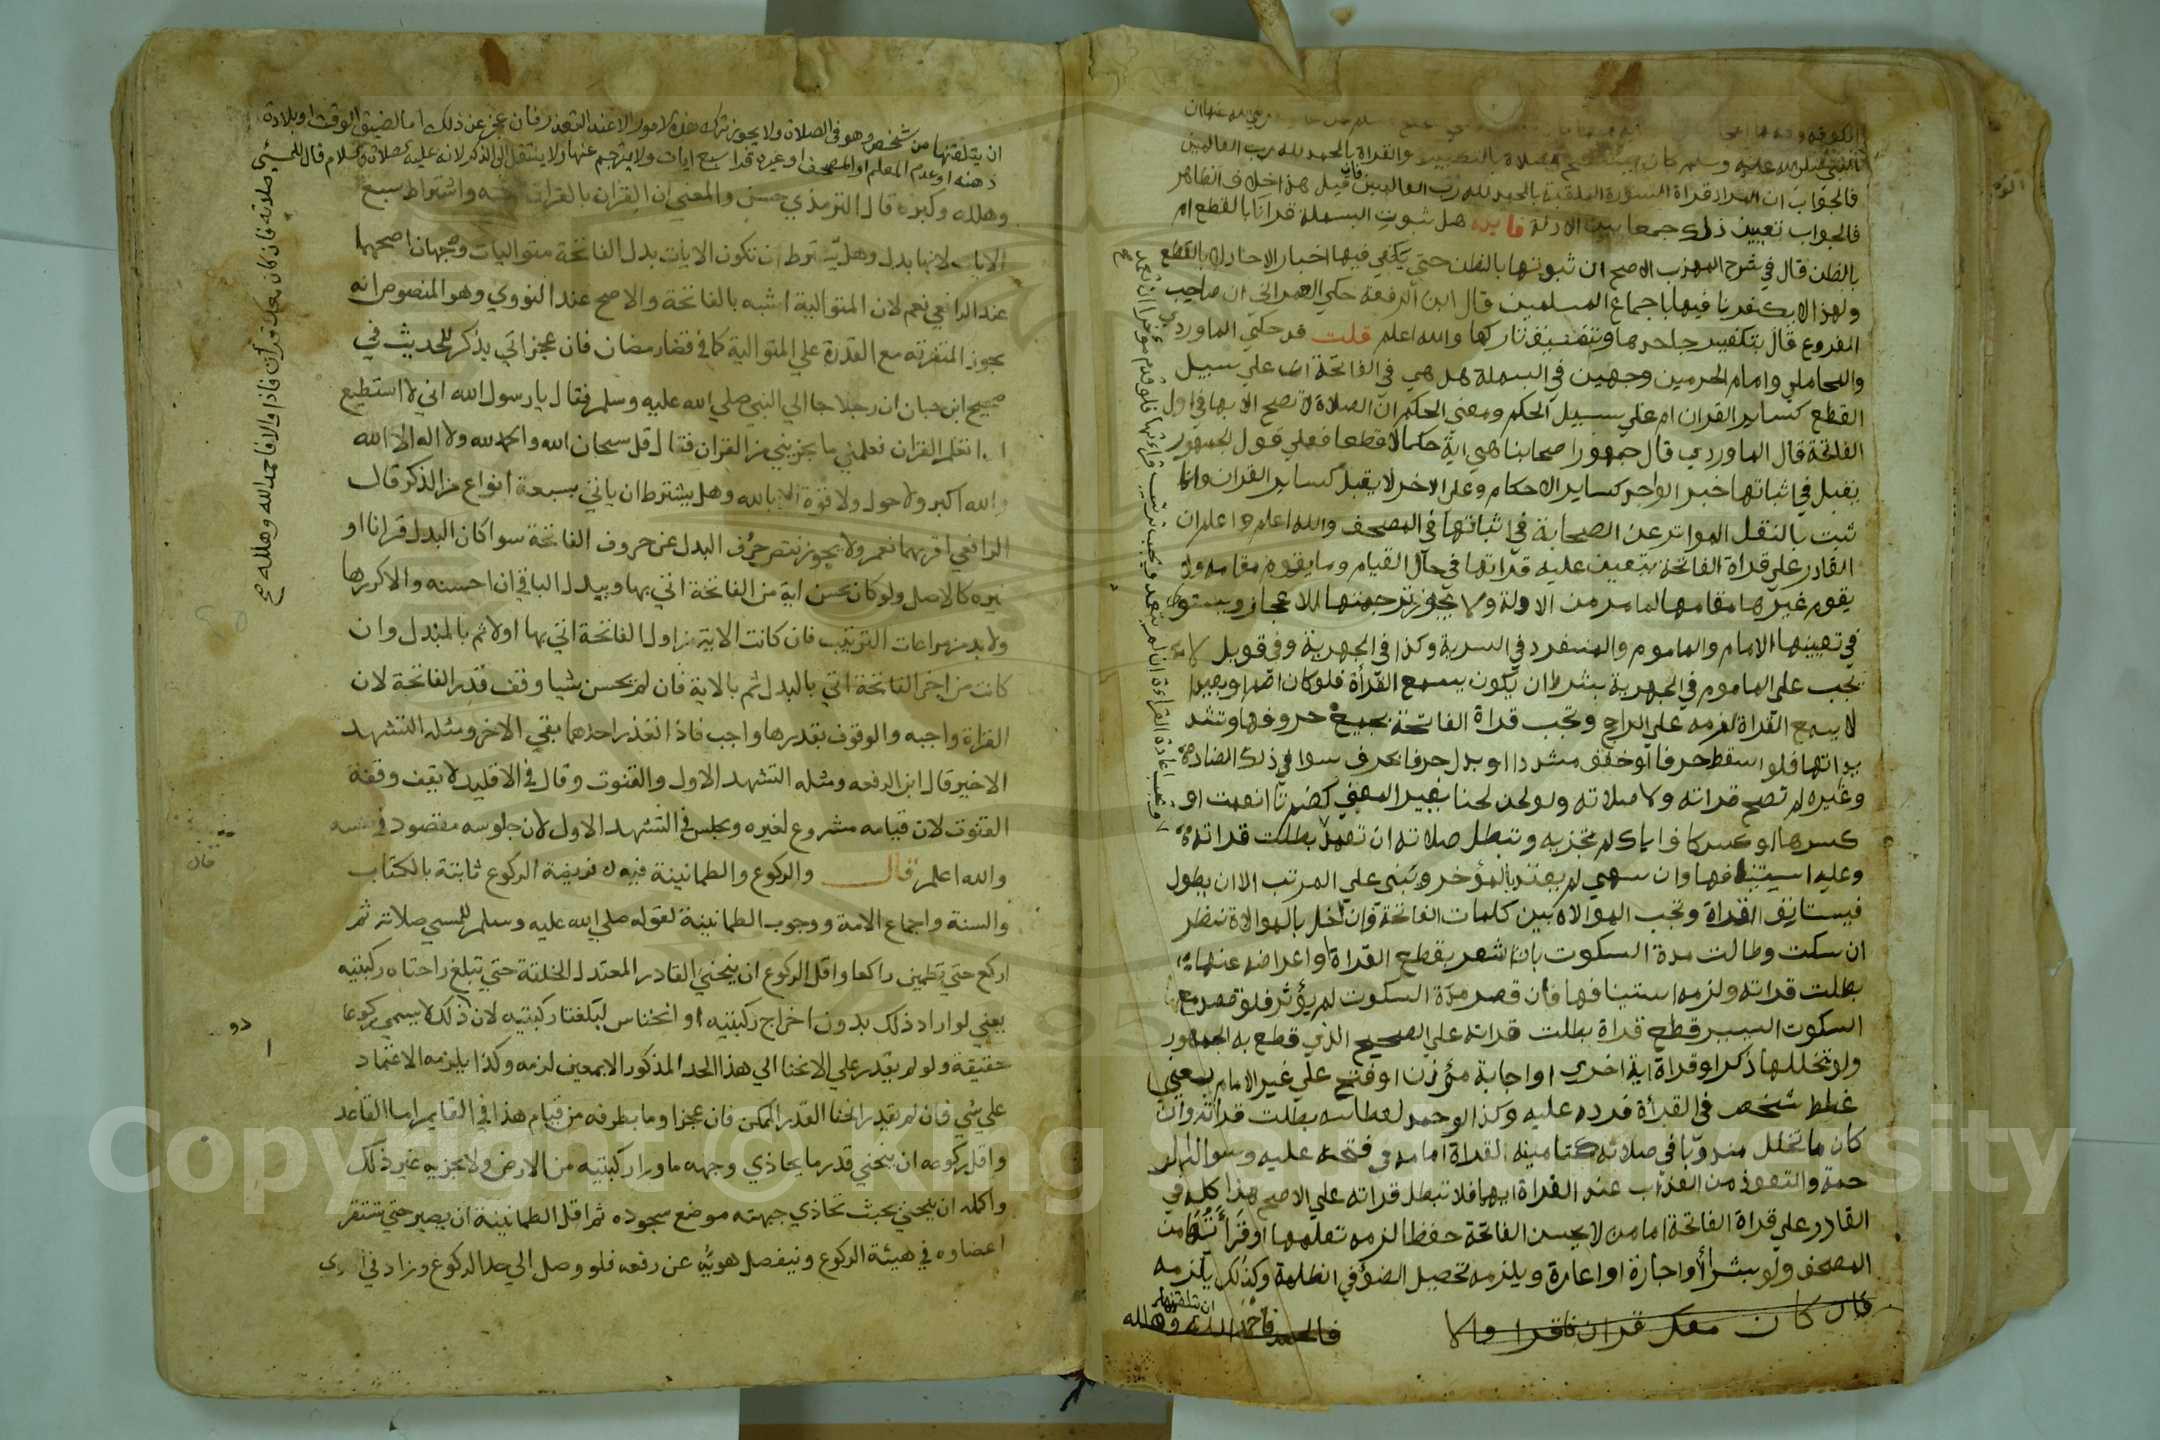 النبي صلى الله عليه وسلم كان يستفتح الصلاة بالتكبير والقراة بالحمد لله رب العالمين
فالجواب ان المراد قراة السورة الملقبة بالحمد لله رب العالمين فان قيل هذا خلاف الظاهر
فالجواب تعيين ذلك جمعا بين الادلة فايدة هل ثبوت البسملة قرانا بالقطع ام
بالظن قال في شرح المهذب الاصح ان ثبوتها بالظن حتى يكفي فيها اخبار الاحاد لا بالقطع
ولهذا لا يكفر نا فيها باجماع المسلمين قال ابن الرفعة حكي العمراني ان صاحب
الفروع قال بتكفير جاحدها وتفسيق تاركها والله اعلم قلت قد حكي الماوردي
والمحاملي وامام الحرمين وجهين في البسملة هل هي في الفاتحة اية علي سبيل
القطع كساير القران ام علي سبيل الحكم ومعني الحكم ان الصلاة لا تصح الا بها في اول
الفاتحة قال الماوردي قال جمهور اصحابنا هي اية حكما لا قطعا فعلي قول الجمهور
يقبل في اثباتها خبر الواحد كساير الاحكام وعلي الاخر لا يقبل كساير القران وانما
ثبت بالنقل المواتر عن الصحابة في اثباتها في المصحف والله اعلم واعلم ان
القادر علي قراة الفاتحة يتعين عليه قراتها في حال القيام وما يقوم مقامه ولا
يقوم غيرها مقامها لما مر من الادلة ولا يجوز ترجمتها للاعجاز ويستوي
في تعيينها الامام والماموم والمنفرد في السرية وكذا في الجهرية وفي قويل لا
يجب علي الماموم في الجهرية بشرط ان يكون يسمع القرأة فلو كان اصم او بعيدا
لا يسمع القراة لزمه علي الراجح وتجب قراة الفاتحة بجميع حروفها وتشد
يداتها فلو اسقط حرفا او خفف مشددا او بدل حرفا بحرف سوا في ذلك الضاد
وغيره لم تصح قراته ولا صلاته ولو لحن لحنا يغير المعني كضم تا انعمت او
كسرها او كسر كاف اياك لم تجزيه وتبطل صلاته ان تعمد بطلت قراته
وعليه استينافها وان سهي لم يعتد بالمؤخر ويبني علي المرتب الا ان يطول
فيستانف القراة وتجب الموالاه بين كلمات الفاتحة فان اخل بالموالاة نظر
ان سكت وطالت مدة السكوت بان اشعر بقطع القراة او اعراضه عنها
بطلت قراته ولزمه استينافها فان قصر مدة السكوت لم يؤثر فلو قصد مع
السكوت اليسير قطع قراة بطلت قراته علي الصحيح الذي قطع به الجمهور
ولو تخللها ذكر او قراة اية اخري او اجابة مؤذن او فتح علي غير الامام يعني
غلط شخص في القرأة فرده عليه وكذا لو حمد لعطاسه بطلت قراته وان
كان ما تخلل مندوبا في صلاته كتامينه لقراة امامه وفتحه عليه وسواله الر
حمة والتعوذ من العذاب عند القراة ايهما فلا تبطل قراته علي الاصح هذا كله في
القادر علي قراة الفاتحة اما من لا يحسن الفاتحة حفظا لزمه تعلمها او قرأتها من
المصحف ولو بشرا او اجارة او اعارة ويلزمه تحصيل الضو في الظلمة وكذلك يلزمه
ان يتلقنها
فان كان معك قران فاقرا والا فاحمد الله وهلله
ان يتلقنها من شخص وهو في الصلاة ولا يجوز ترك هذه الامور الا عند التعذر فان عجز عن ذلك اما لضيق الوقت او بلادة
ذهنه او عدم المعلم او المصحف او غيره قرا سبع ايات ولا يترجم عنها ولا ينتقل الى الذكر لانه عليه الصلاة والسلام قال للمسئ
صلاته فان كان معك قرآن فاقرا والا فاحمد الله وهلله صح
وهلله وكبره قال الترمذي حسن والمعني ان القران بالقران اشبه واشتراط سبع
الايات لانها بدل وهل يشترط ان تكون الايات بدل الفاتحة متواليات وجهان اصحهما
عند الرافعي نعم لان المتوالية اشبه بالفاتحة والاصح عند النووي وهو المنصوص انه
يجوز المتفرقه مع القدرة علي المتوالية كما في قضا رمضان فان عجز اتي بذكر للحديث في
صحيح ابن حبان ان رجلا جا الي النبي صلي الله عليه وسلم فقال يا رسول الله اني لا استطيع
ان اتعلم القران فعلمني ما يجزيني من القران فقال قل سبحان الله والحمد لله ولا اله الا الله
والله اكبر ولا حول ولا قوة الا بالله وهل يشترط ان ياتي بسبعة انواع من الذكر قال
الرافعي اقربهما نعم ولا يجوز نقص حروف البدل عن حروف الفاتحة سوا كان البدل قرانا او
غيره كالاصل ولو كان يحسن اية من الفاتحة اتي بها ويبدل الباقي ان احسنه والا كررها
ولا بد من مراعات الترتيب فان كانت الاية من اول الفاتحة اتي بها اولا ثم بالبدل وان
كانت من اخر الفاتحة اتي بالبدل ثم بالاية فان لم يحسن شيا وقف قدر الفاتحة لان
القراة واجبه والوقوف بقدرها واجب فاذا تعذر احدهما بقي الاخر ومثله التشهد
الاخير قال ابن الرفعه ومثله التشهد الاول والقنوت وقال في الاقليد لا يقف وقفة
القنوت لان قيامه مشروع لغيره ويجلس في التشهد الاول لان جلوسه مقصود في نفسه
والله اعلم قال والركوع والطمانينة فيه فريضة الركوع ثابتة بالكتاب
والسنة واجماع الامة ووجوب الطمانينة لقوله صلي الله عليه وسلم للمسي صلاته ثم
اركع حتي تطمين راكعا واقل الركوع ان ينحني القادر المعتدل الخلقة حتي تبلغ راحتاه ركبتيه
يعني لو اراد ذلك بدون اخراج ركبتيه او انخناس لبلغتا ركبتيه لان ذلك لا يسمي ركوعا
حقيقة ولو لم يقدر علي الانحنا الي هذا الحد المذكور الا بمعين لزمه وكذا يلزمه الاعتماد
علي شي فان لم يقدر انحنا القدر الممكن فان عجز اوما بطرفه من قيام هذا في القايم اما القاعد
واقل ركوعه ان ينحني قدر ما يحاذي وجهه ما ورا ركبتيه من الارض ولا يجزيه غير ذلك
واكمله ان ينحني بحيث تحاذي جبهته موضع سجوده ثم اقل الطمانينة ان يصير حتي تستقر
اعضاوه في هيئة الركوع وينفصل هويه عن رفعه فلو وصل الي حد الركوع وزاد في
Copyright © King Saud University